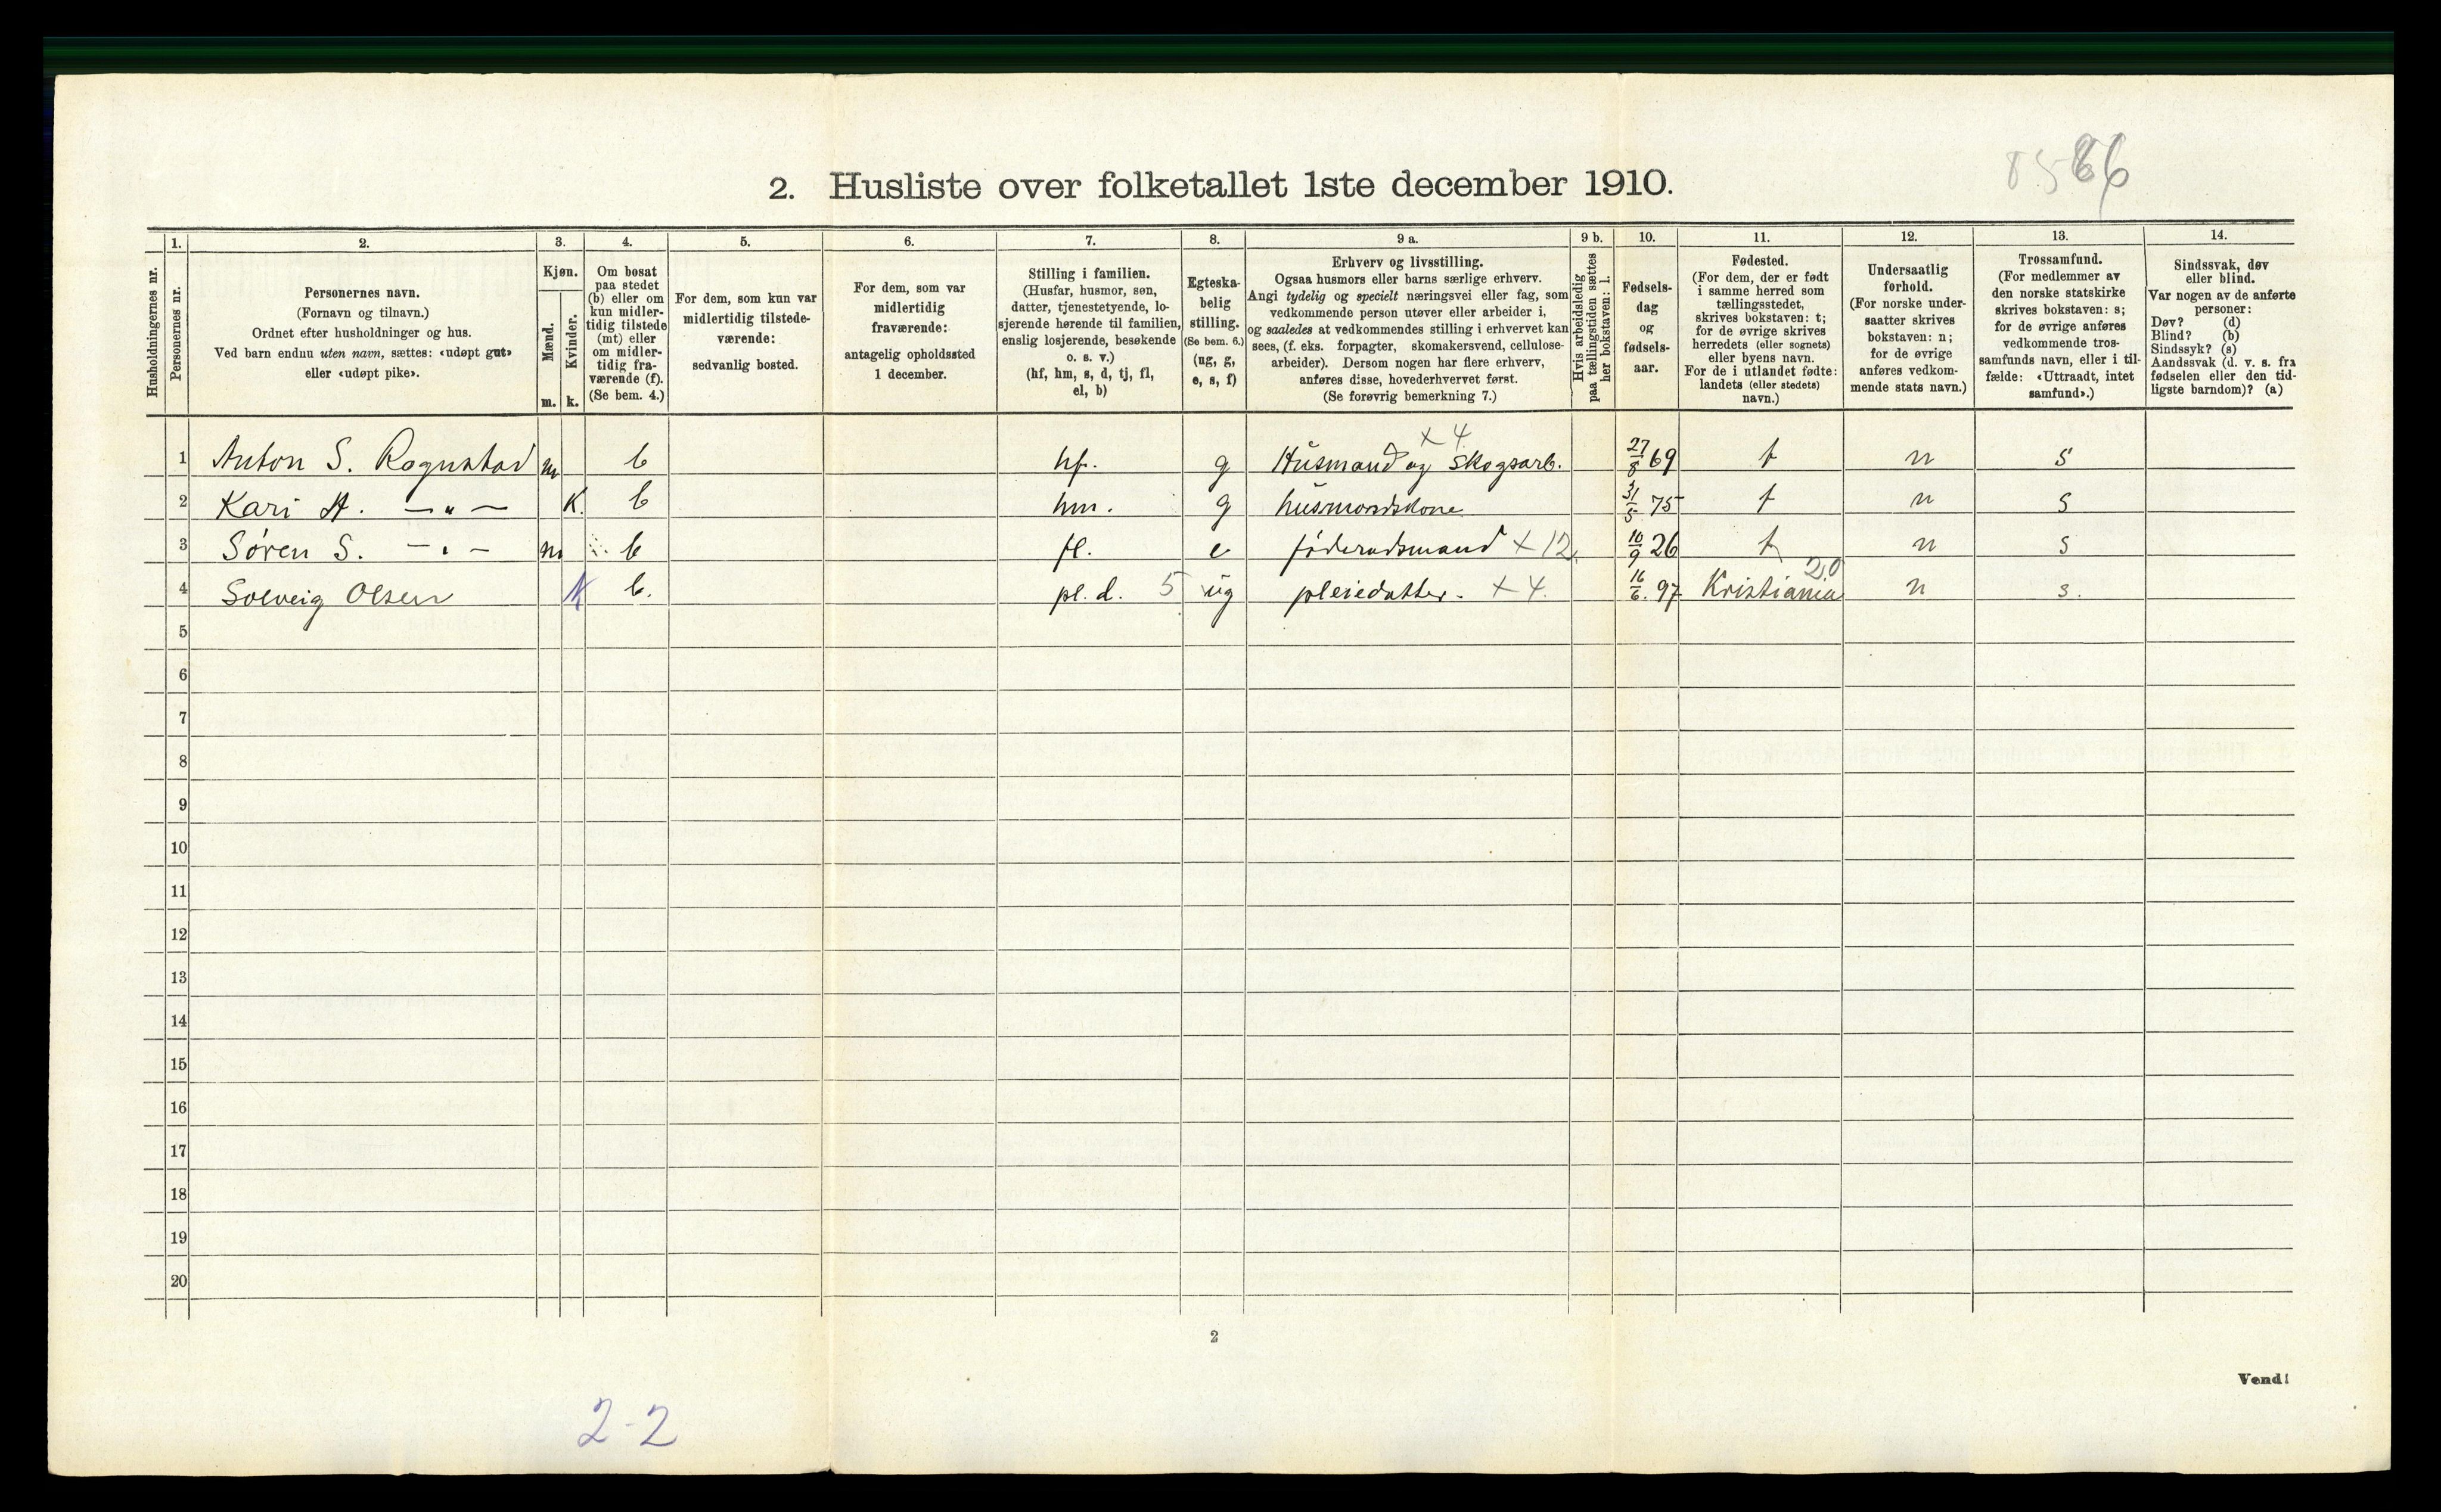 8586
2. Husliste over folketallet 1ste december 1910.
Husholdningernes nr.
1. Personernes nr.
2. Personernes navn. (Fornavn og tilnavn.) Ordnet efter husholdninger og hus. Ved barn endnu uten navn, sættes: «udøpt gut» eller «udøpt pike».
3. Kjøn. Mænd. m. Kvinder. k.
4. Om bosat paa stedet (b) eller om kun midler-tidig tilstede (mt) eller om midler-tidig fra-værende (f). (Se bem. 4.)
5. For dem, som kun var midlertidig tilstede-værende: sedvanlig bosted.
6. For dem, som var midlertidig fraværende: antagelig opholdssted 1 december.
7. Stilling i familien. (Husfar, husmor, søn, datter, tjenestetyende, lo-sjerende hørende til familien, enslig losjerende, besøkende o. s. v.) (hf, hm, s, d, tj, fl, el, b)
8. Egteska-belig stilling. (Se bem. 6.) (ug, g, e, s, f)
9 a. Erhverv og livsstilling. Ogsaa husmors eller barns særlige erhverv. Angi tydelig og specielt næringsvei eller fag, som vedkommende person utøver eller arbeider i, og saaledes at vedkommendes stilling i erhvervet kan sees, (f. eks. forpagter, skomakersvend, cellulose-arbeider). Dersom nogen har flere erhverv, anføres disse, hovederhvervet først. (Se forøvrig bemerkning 7.)
9 b. Hvis arbeidsledig paa tællingstiden sættes her bokstaven: l.
10. Fødsels-dag og fødsels-aar.
11. Fødested. (For dem, der er født i samme herred som tællingsstedet, skrives bokstaven: t; for de øvrige skrives herredets (eller sognets) eller byens navn. For de i utlandet fødte: landets (eller stedets) navn.)
12. Undersaatlig forhold. (For norske under-saatter skrives bokstaven: n; for de øvrige anføres vedkom-mende stats navn.)
13. Trossamfund. (For medlemmer av den norske statskirke skrives bokstaven: s; for de øvrige anføres vedkommende tros-samfunds navn, eller i til-fælde: «Uttraadt, intet samfund».)
14. Sindssvak, døv eller blind. Var nogen av de anførte personer: Døv? (d) Blind? (b) Sindssyk? (s) Aandssvak (d. v. s. fra fødselen eller den tid-ligste barndom)? (a)
1 Anton S. Rognstad m b hf. g Husmand og Skogsarb. x 4. 27/8 69 t n s
2 Kari A. —„— K. b hm. g husmandskone 31/5 75 t n s
3 Søren S. —„— m b fl. e føderadsmand x 12. 10/9 26 t n s
4 Solveig Olsen K b. pl. d. 5 ug pleiedatter. x 4. 16/6. 97 Kristiania 20 n s.
5
6
7
8
9
10
11
12
13
14
15
16
17
18
19
20
2
Vend!
2-2